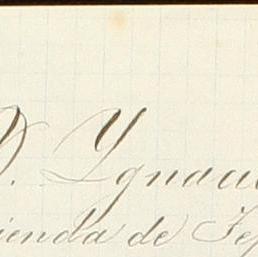 D. Ygnacio
ienda de Tep